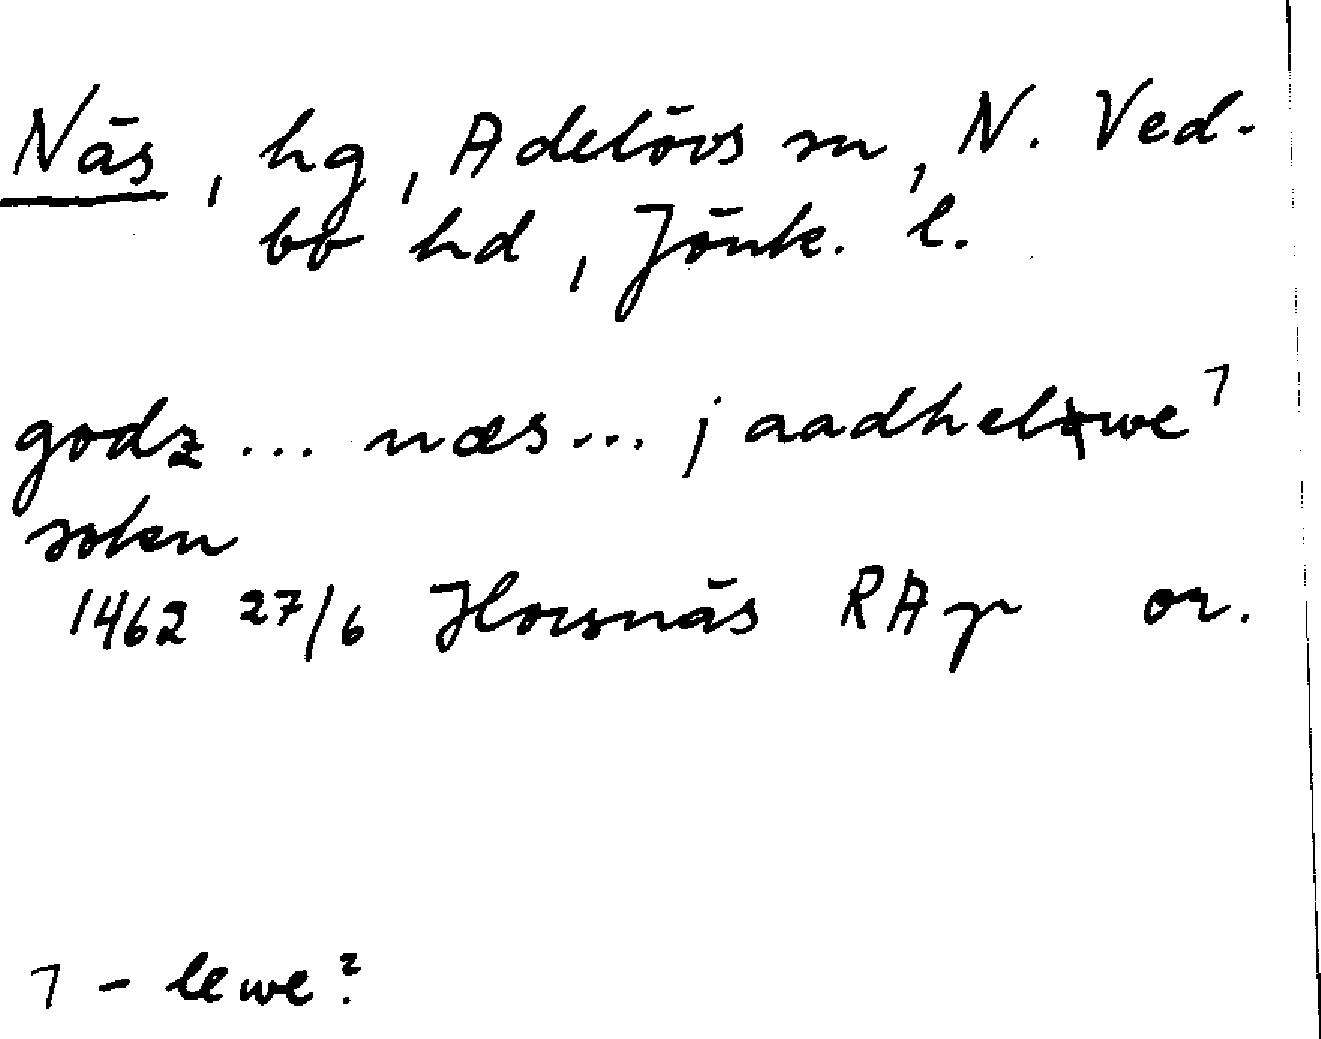 Näs, hg, Adelövs sn, N. Ved-
bo hd, Jönk. l.
godz ... næs ... j aadheløwe 1
soken
1462 27/6 Hornsnäs RAp or.
1 - lewe?